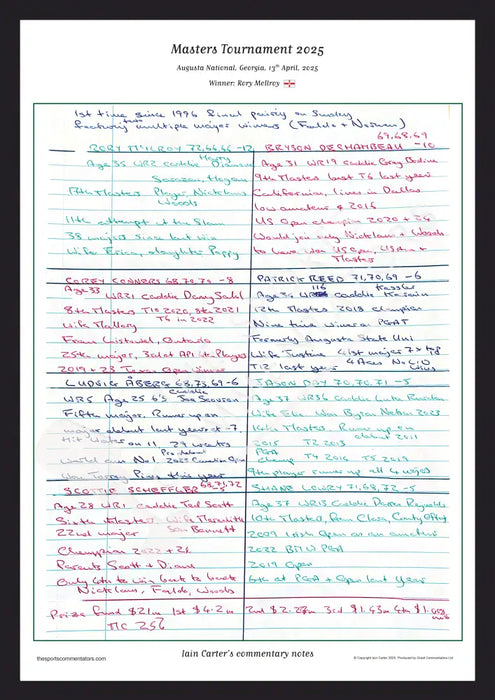 Masters Tournament 2025
Augusta National, Georgia, 13th April, 2025
Winner: Rory McIlroy
1st time since 1996 final pairing on Sunday
featuring two multiple major winners (Faldo + Norman)
RORY McILROY 72,66,66 -12
Age 35 WR2 caddie Harry Diamond
Sarazen, Hogan
17th Masters Player, Nicklaus
Woods
11th attempt at the Slam
38 majors since last win
Wife Erica, daughter Poppy
69,68,69
BRYSON DECHAMBEAU -10
Age 31 WR19 caddie Greg Bodine
9th Masters best T6 last year
Californian, lives in Dallas
low amateur @ 2016
US Open champion 2020 + 24
Would join only Nicklaus + Woods
to have won US Open, US Am +
Masters
COREY CONNERS 68,70,70 -8
Age 33 WR21 caddie Danny Sahl
8th Masters T10 2020, 8th 2021
T6 in 2022
Wife Mallory
From Listowel, Ontario
25th major, 3rd at API + Players
2019 + 23 Texas Open winner
PATRICK REED 71,70,69 -6
Age 34 WR 116 caddie Kessler Karain
12th Masters 2018 champion
Nine time winner PGAT
Formerly Augusta State Uni
Wife Justine 41st major 7 x top
T12 last year 4 Aces No LIV
wins
LUDVIG ÅBERG 68,73,69 -6
WR5 Age 25 caddie Joe Skovron
Fifth major. Runner up on
major debut last year @ -7.
Hit water on 11
World am No 1. 2023 Canadian Open
Won Torrey Pines this year
JASON DAY 70,70,71 -5
Age 37 WR36 caddie Luke Reardon
Wife Ellie Won Byron Nelson 2023
14th Masters. Runner up on
debut 2011
2015 T2 2013
PGA
champ T4 2016 T5 2019
9th player runner up all 4 majors
SCOTTIE SCHEFFLER 68,71,72 -5
Age 28 WR1 caddie Ted Scott
Sixth Masters Wife Meredith
22nd major Son Bennett
Champion 2022 + 24
Parents Scott + Diane
Only 4th to win back to back
Nicklaus, Faldo, Woods
SHANE LOWRY 71,68,72 -5
Age 37 WR13 Caddie Darren Reynolds
10th Masters, from Clara, County Offaly
2009 Irish Open as an amateur
2022 BMW PGA
2019 Open
6th at PGA + Open last year
Prize fund $21m 1st $4.2m 2nd $2.27m 3rd $1.43m 4th
TIC 256
Iain Carter's commentary notes
thesportscommentators.com
© Copyright Iain Carter 2025. Produced by Great Commentaries Ltd